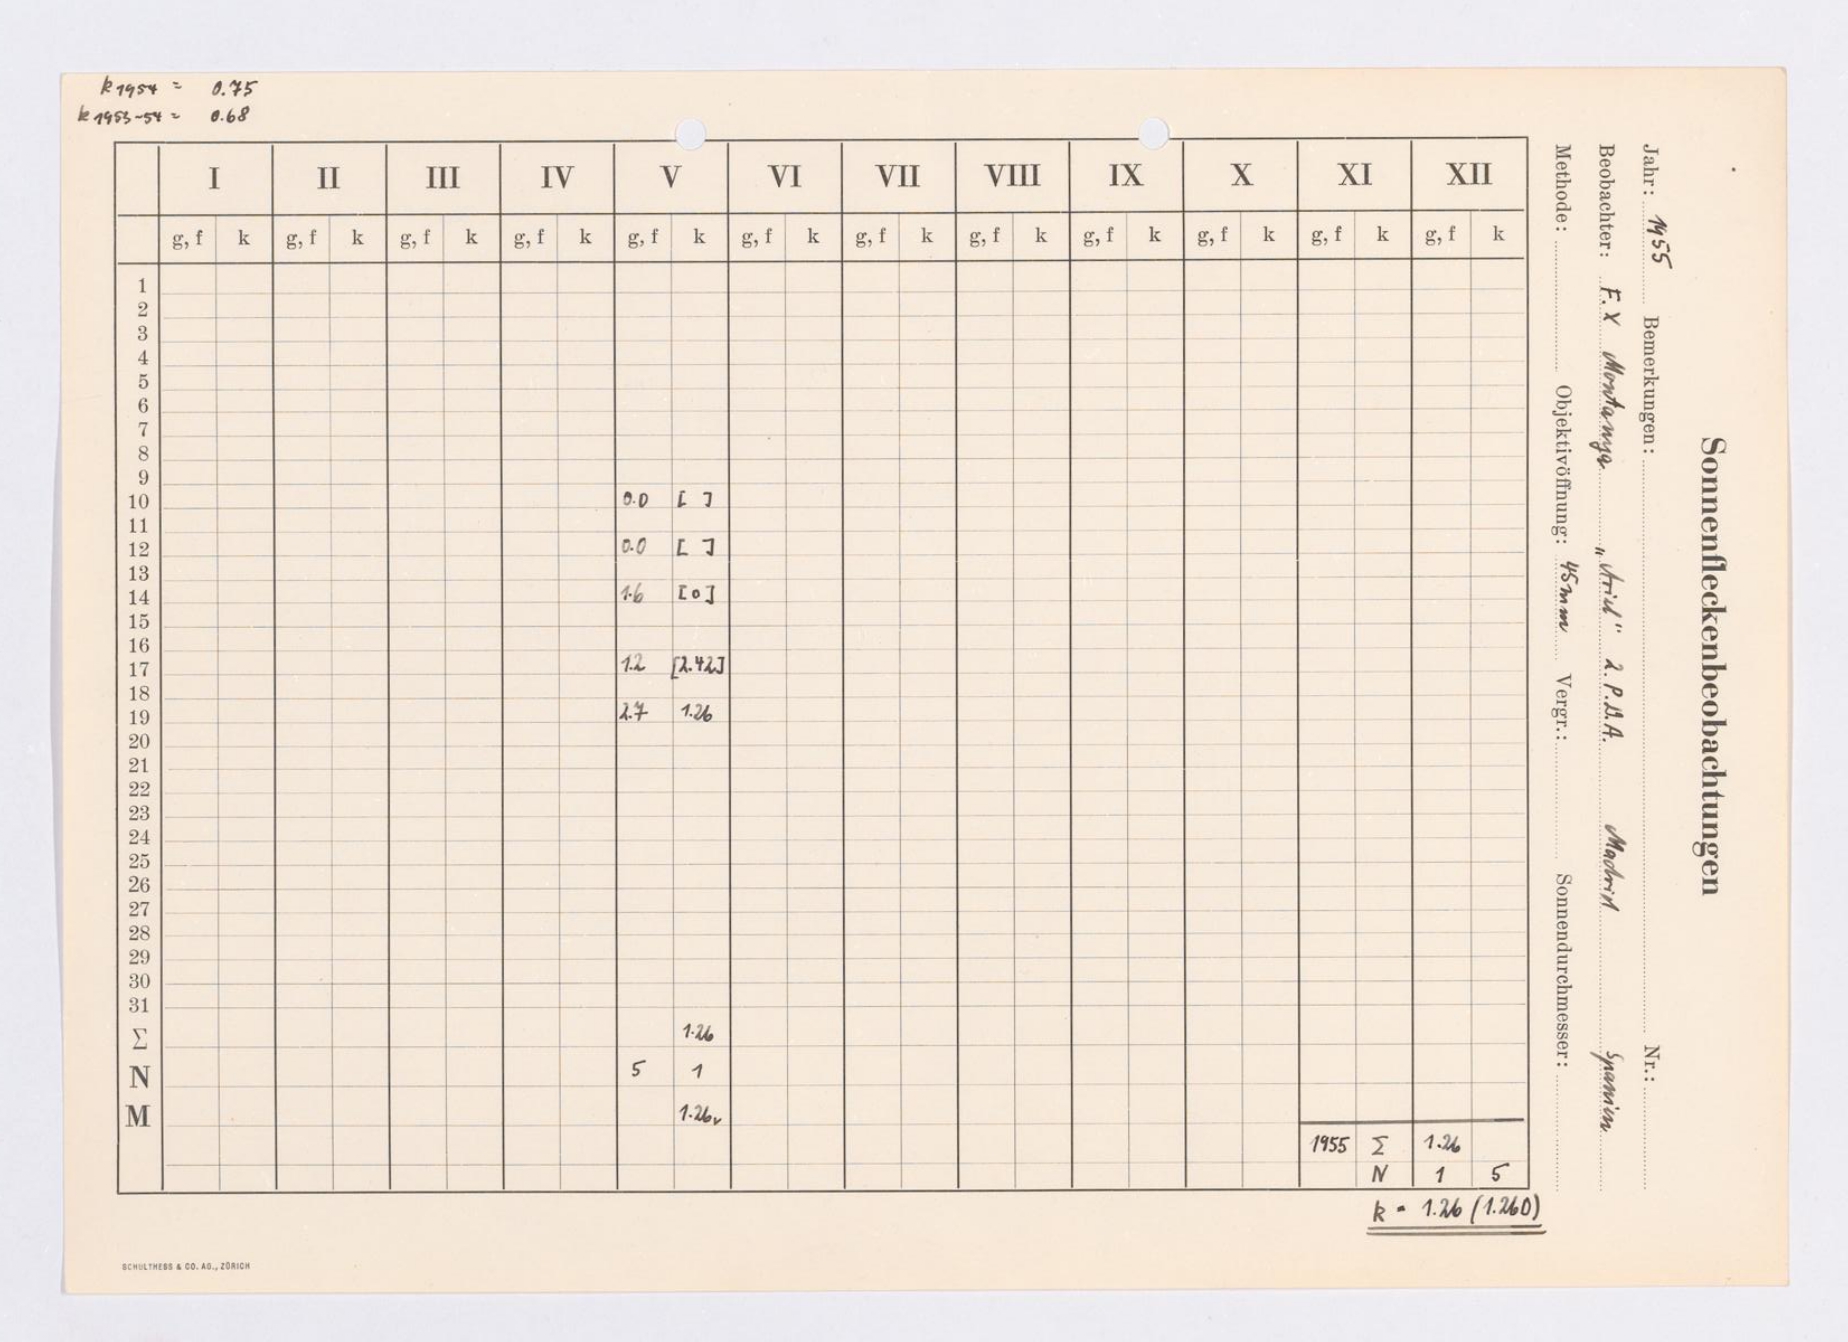 k 1954 = 0.75
k 1953-54 = 0.68
Sonnenfleckenbeobachtungen
Jahr: 1955 Bemerkungen: Nr.:
Beobachter: F. X Montanya 2. P.D.A. Madrid Spanien
Methode: Objektivöffnung: 45mm Vergr.: Sonnendurchmesser:
I II III IV V VI VII VIII IX X XI XII
g, f k g, f k g, f k g, f k g, f k g, f k g, f k g, f k g, f k g, f k g, f k g, f k
1
2
3
4
5
6
7
8
9
10 0.0 [ ]
11
12 0.0 [ ]
13
14 1.6 [0]
15
16
17 1.2 [2.42]
18
19 2.7 1.26
20
21
22
23
24
25
26
27
28
29
30
31
Σ 1.26
N 5 1
M 1.26
1955 Σ 1.26
N 1 5
k = 1.26 (1.260)
SCHULTHESS & CO. AG., ZÜRICH